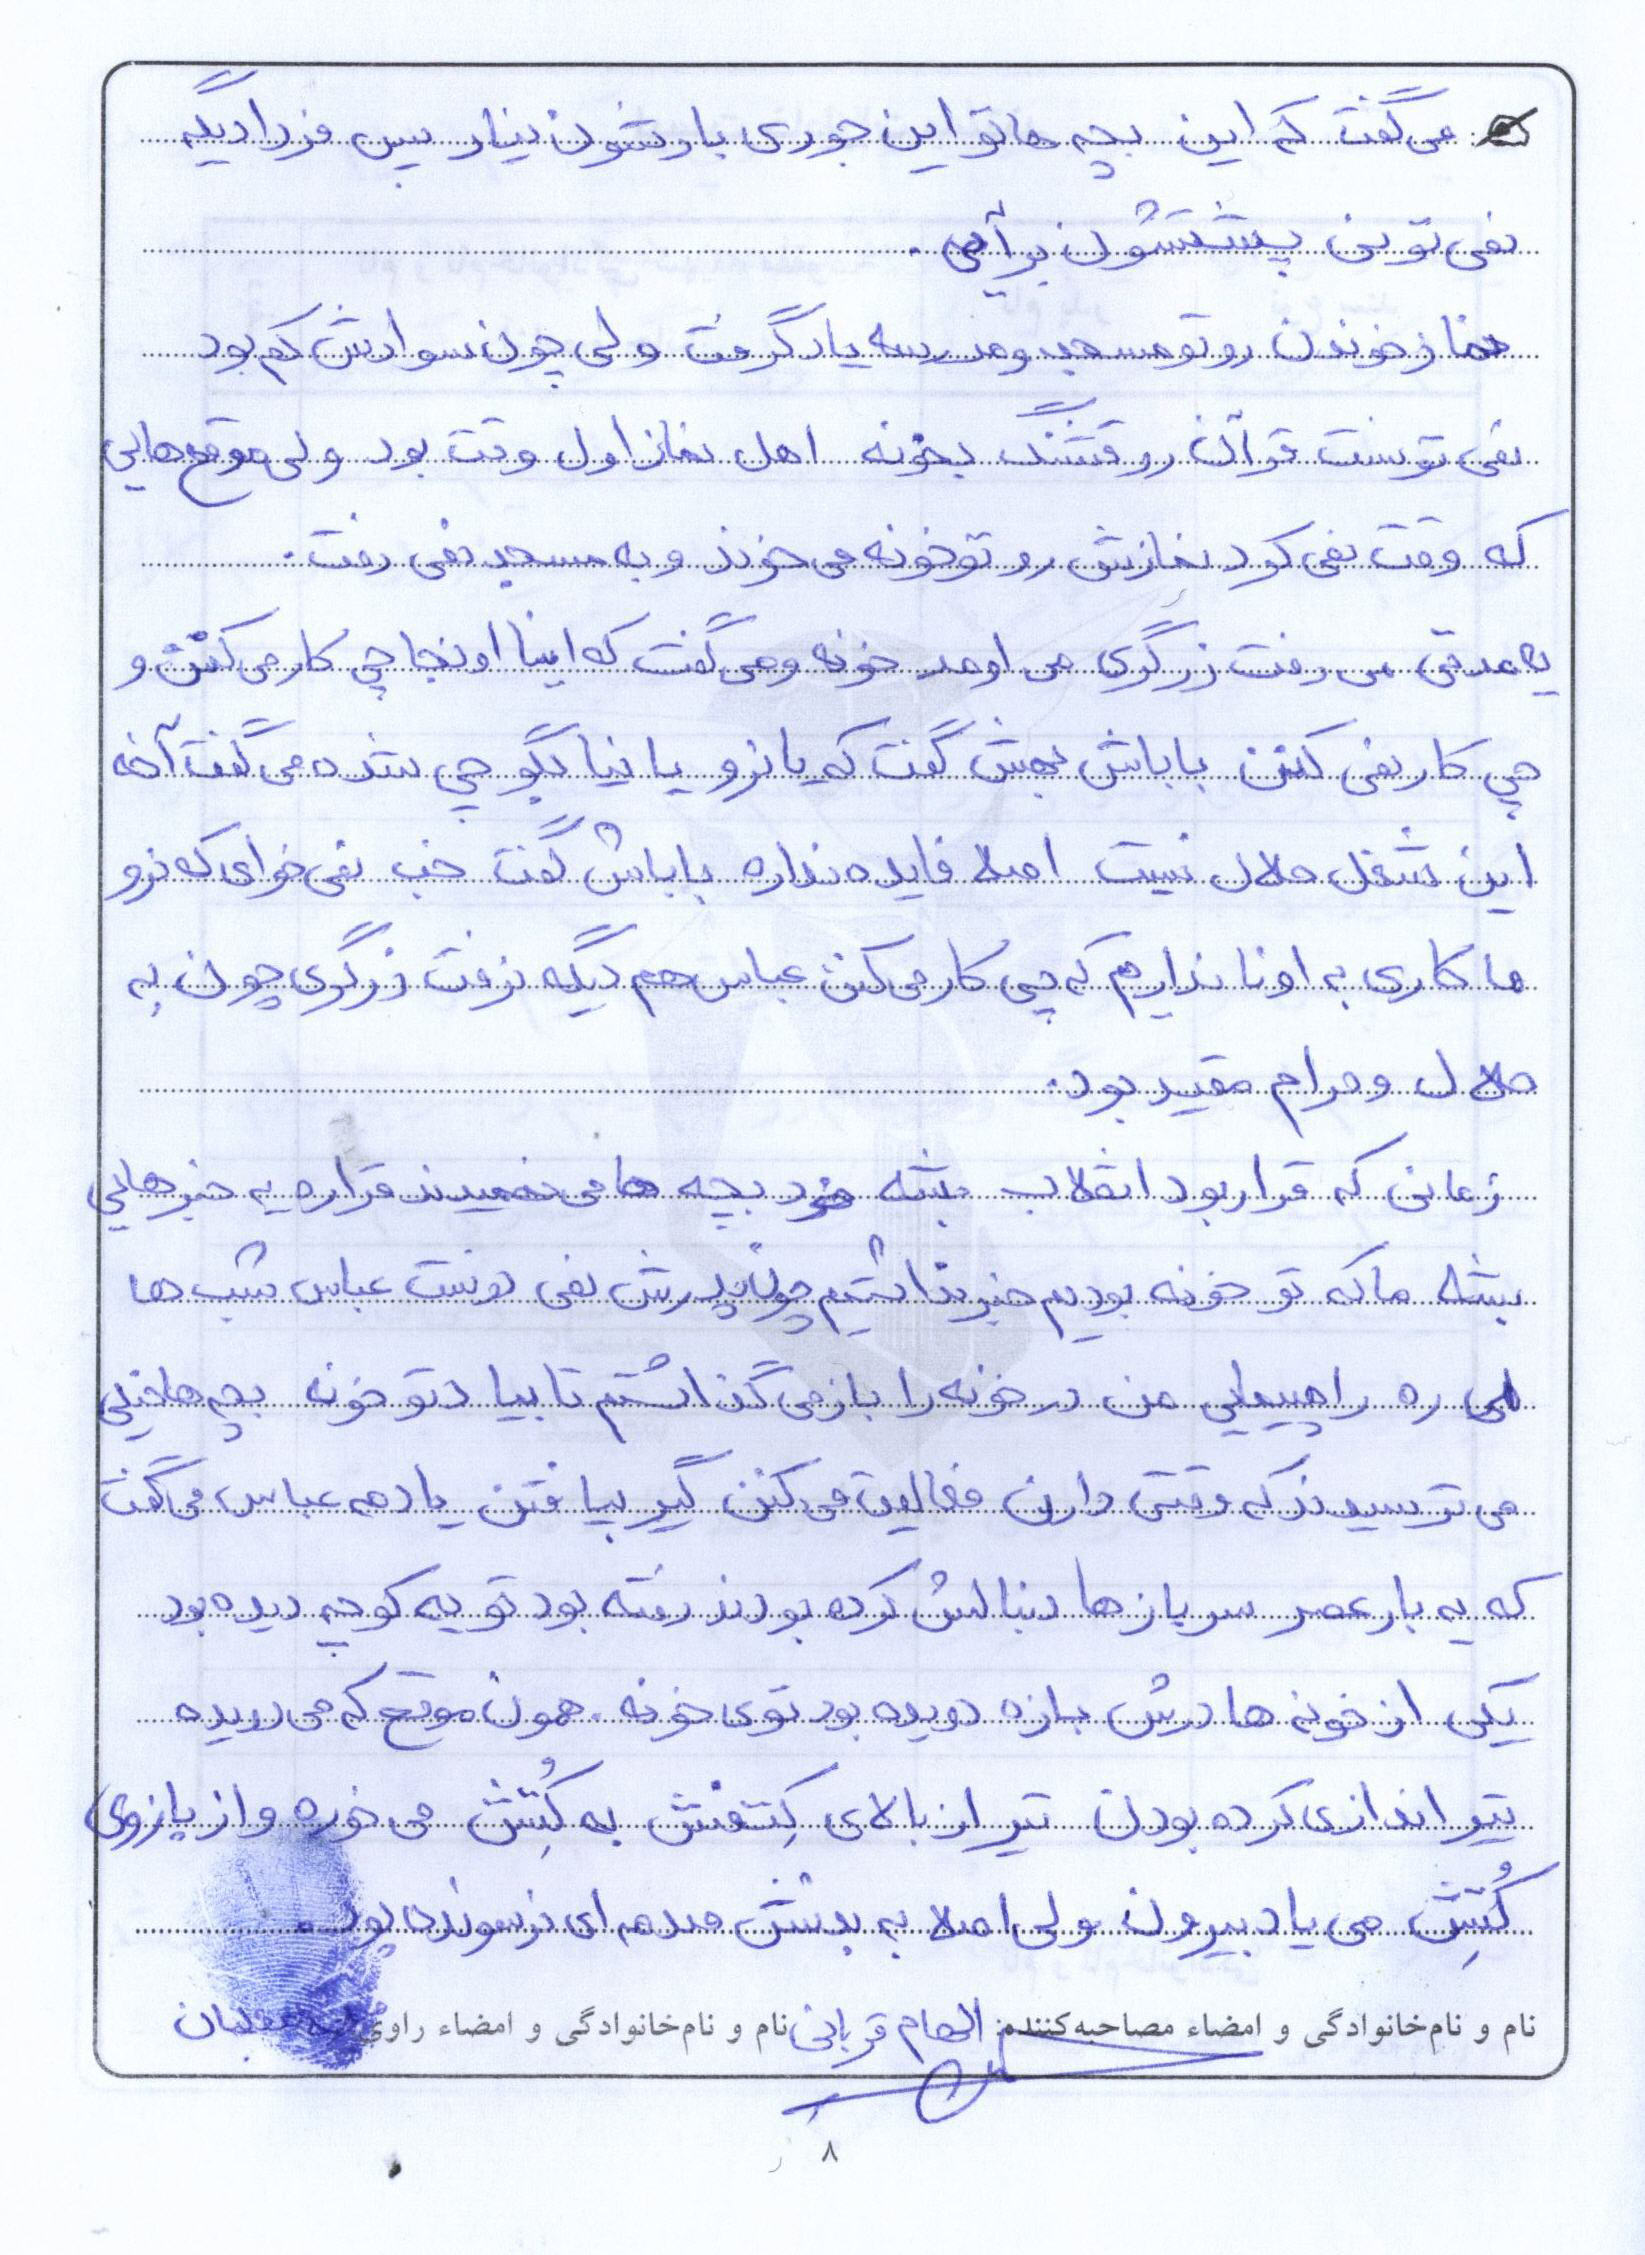 می گفت که این بچه ها تو این جوری بارشون نیار پس فردا دیگه
نمی تونی پشتشون برآیی.
نماز خوندن رو تو مسجد و مدرسه یاد گرفت ولی چون سوادش کم بود
نمی تونست قرآن رو قشنگ بخونه اهل نماز اول وقت بود ولی موقع هایی
که وقت نمی کرد نمازش رو تو خونه می خوند و به مسجد نمی رفت.
یه مدتی می رفت زرگری می اومد خونه و می گفت که اینا اونجا چی کار می کنن و
چی کار نمی کنن باباش بهش گفت که یا نرو یا نیا بگو چی شده می گفت آخه
این شغل حلال نیست اصلا فایده نداره باباش گفت خب نمی خوای که نرو
ما کاری به اونا نداریم که چی کار می کنن عباس هم دیگه نرفت زرگری چون به
حلال و حرام مقید بود.
زمانی که قرار بود انقلاب بشه خود بچه ها می فهمیدند قراره یه خبرهایی
بشه ما که تو خونه بودیم خبر نداشتیم چون پدرش نمی دونست عباس شب ها
می ره راهپیمایی من در خونه را باز می گذاشتم تا بیاد تو خونه بچه ها خیلی
می ترسیدند که وقتی دارن فعالیت می کنن گیر بیافتن یادمه عباس می گفت
که یه بار عصر سربازها دنبالش کرده بودند رفته بود تو یه کوچه دیده بود
یکی از خونه ها درش بازه دویده بود توی خونه. همون موقع که می دویده
تیراندازی کرده بودن تیر از بالای کِتفش به کُتِش می خوره و از بازوی
کُتِش می یاد بیرون ولی اصلا به بدنش صدمه ای نرسونده بود.
نام و نام‌خانوادگی و امضاء مصاحبه‌کننده: الهام قربانی نام و نام‌خانوادگی و امضاء راوی:
۸